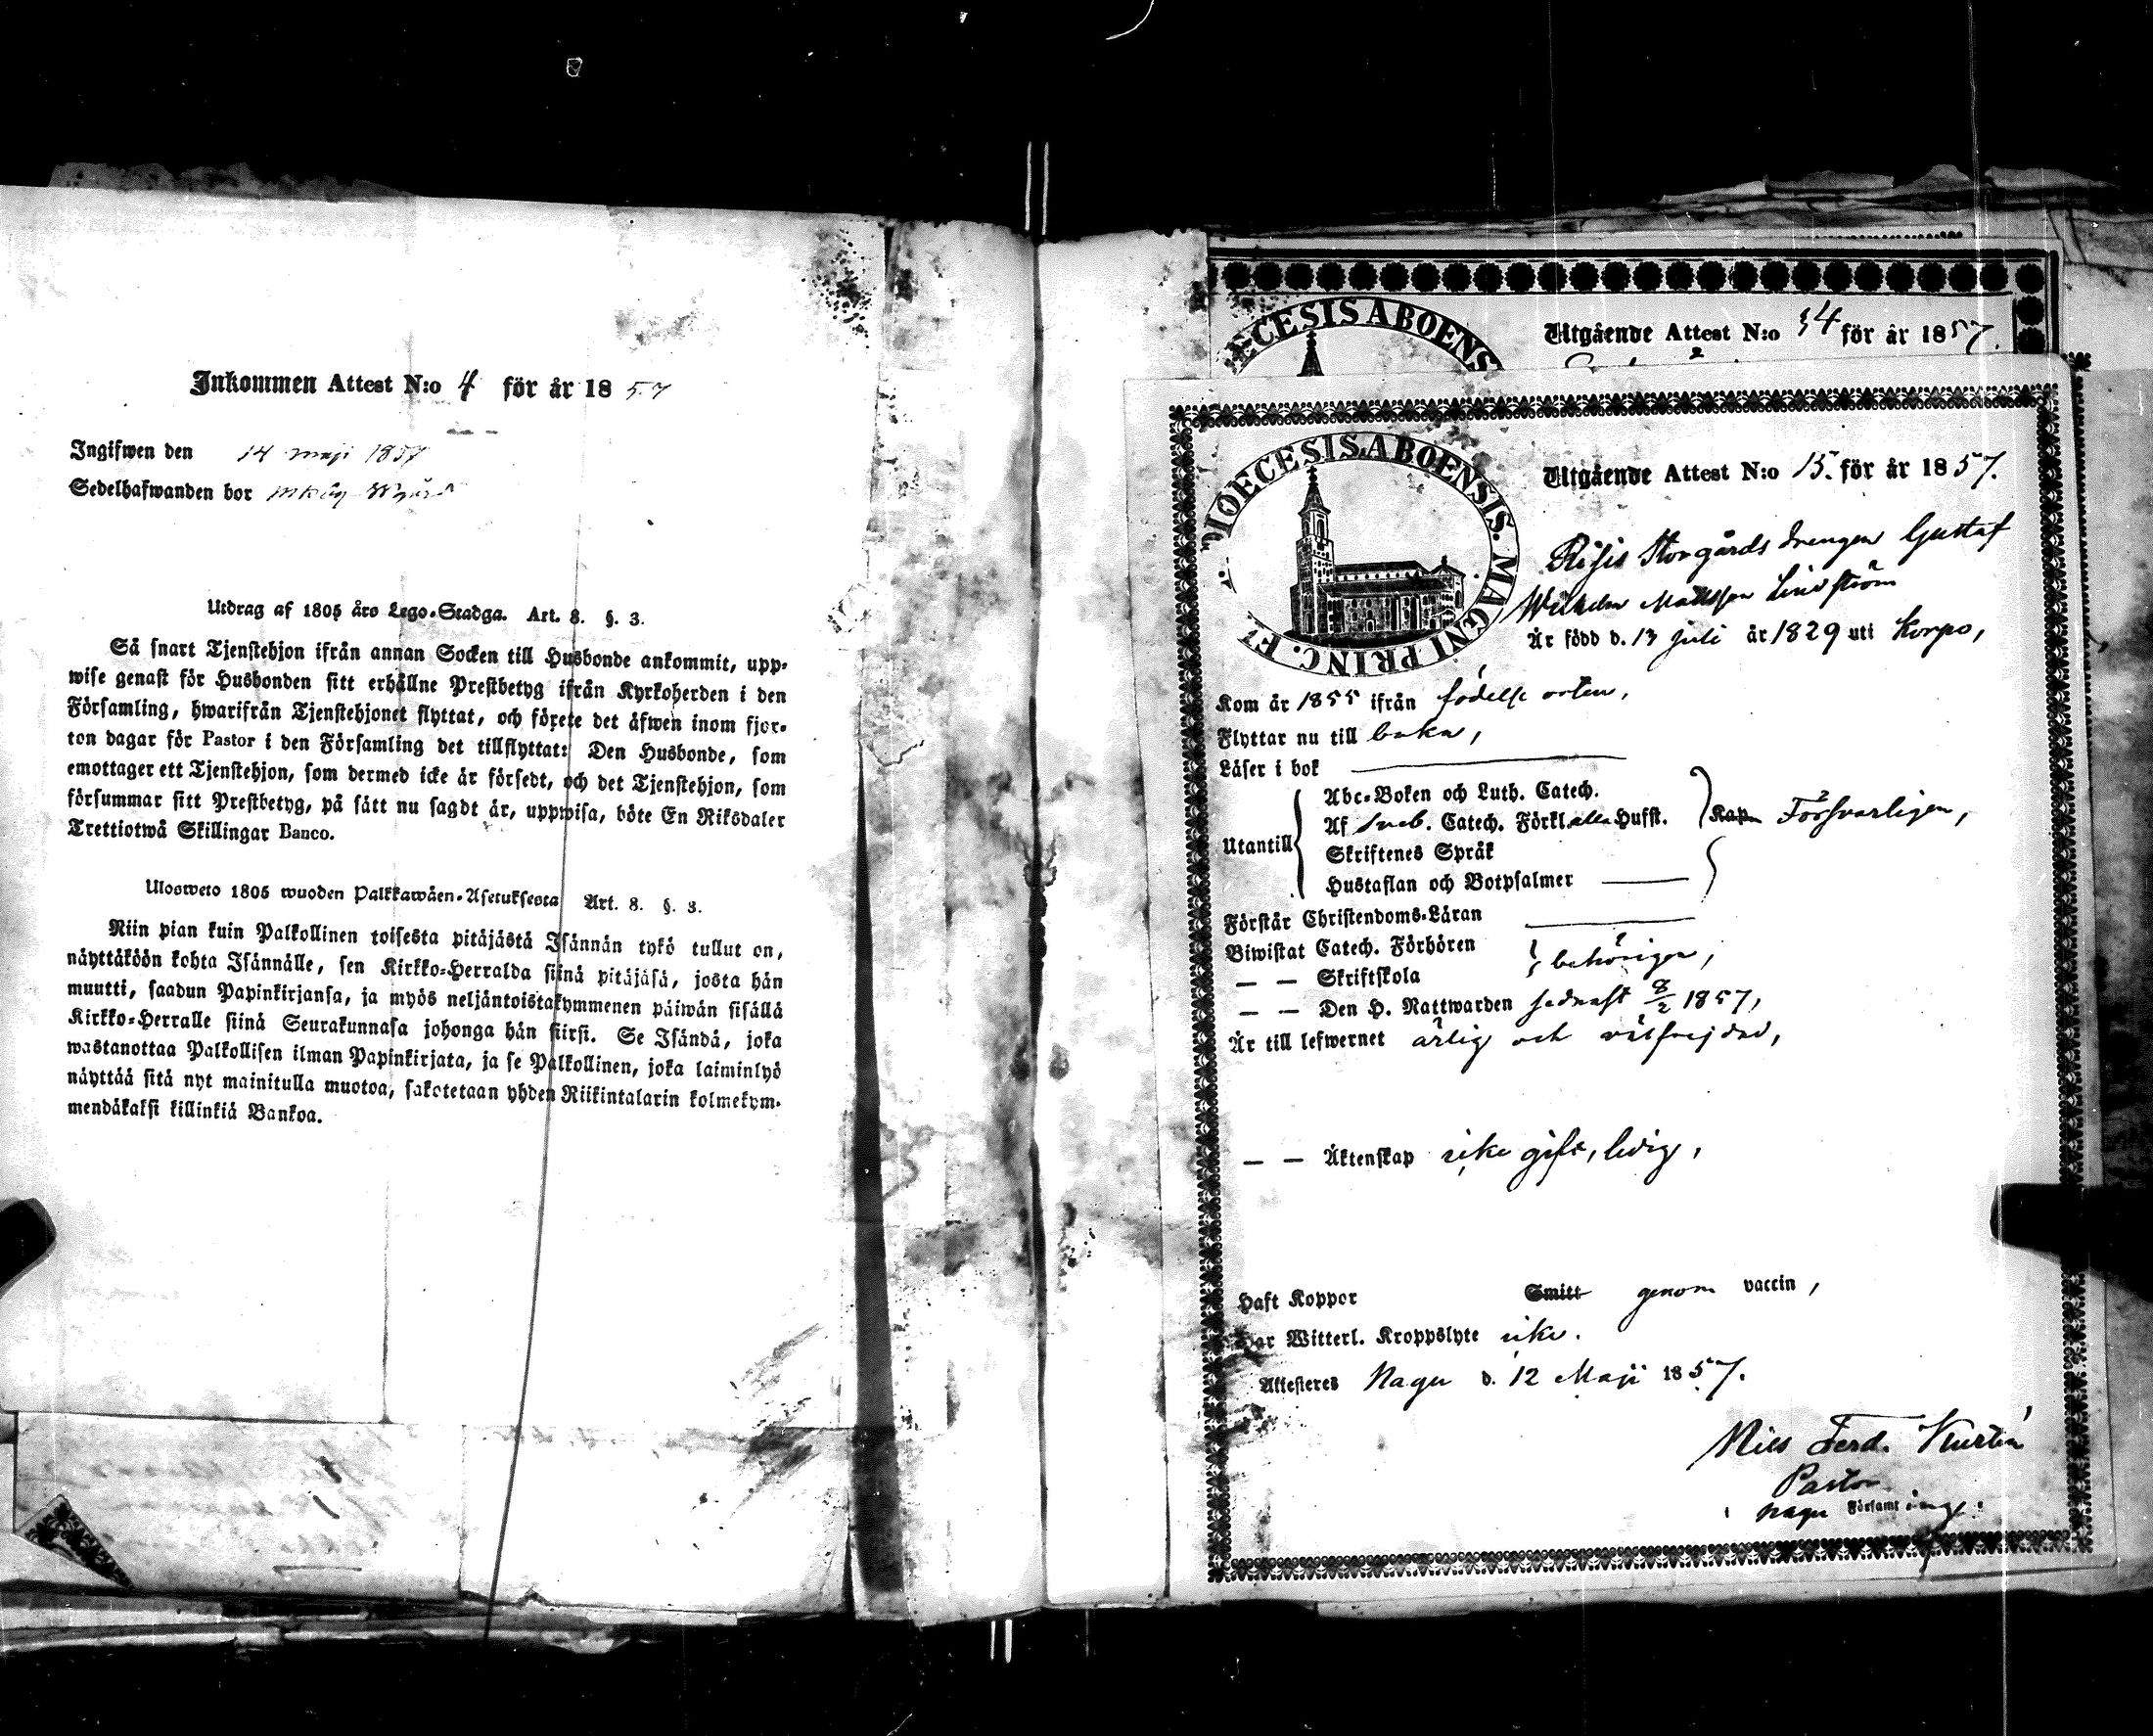 Inkommen Attest N:o 4 för år 1857
Ingifwen den 14 maji 1857
Sedelhafwanden bor
Utdrag af 1805 års Lego-Stadga. Art. 8. §. 3.
Så snart Tjenstehjon ifrån annan Socken till Husbonde ankommit, upp-
wise genast för Husbonden sitt erhållne Prestbetyg ifrån Kyrkoherden i den
Församling, hwarifrån Tjenstehjonet flyttat, och förete det äfwen inom fjor-
ton dagar för Pastor i den Församling det tillflyttat: Den Husbonde, som
emottager ett Tjenstehjon, som dermed icke är försedt, och det Tjenstehjon, som
försummar sitt Prestbetyg, på sätt nu sagdt är, uppwisa, böte En Riksdaler
Trettiotwå Skillingar Banco.
Ulosweto 1805 wuoden Palkkawäen-Asetuksesta Art. 8. §. 3.
Niin pian kuin Palkollinen toisesta pitäjästä Isännän tykö tullut on,
näyttäköön kohta Isännälle, sen Kirkko-Herralda siinä pitäjäsä, josta hän
muutti, saadun Papinkirjansa, ja myös neljäntoistakymmenen päiwän sisällä
Kirkko-Herralle siinä Seurakunnasa johonga hän siirsi. Se Isändä, joka
wastanottaa Palkollisen ilman Papinkirjata, ja se Palkollinen, joka laiminlyö
näyttää sitä nyt mainitulla muotoa, sakotetaan yhden Riikintalarin kolmekym-
mendäkaksi killinkiä Bankoa.
ŒCESIS ABOENS
Utgående Attest N:o 14 för år 1857.
IOECESIS ABOENSIS. MAGNI PRINC. F
Utgående Attest N:o 15. för år 1857.
Risis Storgårds drengen Gustaf
Wilhelm Mattsson Lindström
Är född d. 13 juli år 1829 uti Korpo,
Kom år 1855 ifrån födelse orten,
Flyttar nu till baka,
Läser i bok
Abc-Boken och Luth. Catech.
Af Sveb. Catech. Förkl. alla Hufst. Kap. Försvarligen,
Utantill
Skriftenes Språk
Hustaflan och Botpsalmer
Förstår Christendoms-Läran
Biwistat Catech. Förhören behörigen,
— — Skriftskola
— — Den H. Nattwarden sednast 8/2 1857,
Är till lefwernet ärlig och välfrejdad,
— — Äktenskap icke gift, ledig,
Haft Koppor Smitt genom vaccin,
Har Witterl. Kroppslyte icke.
Attesteres Nagu d. 12 Maji 1857.
Nils Ferd.
Pastor
i Nagu Församling.